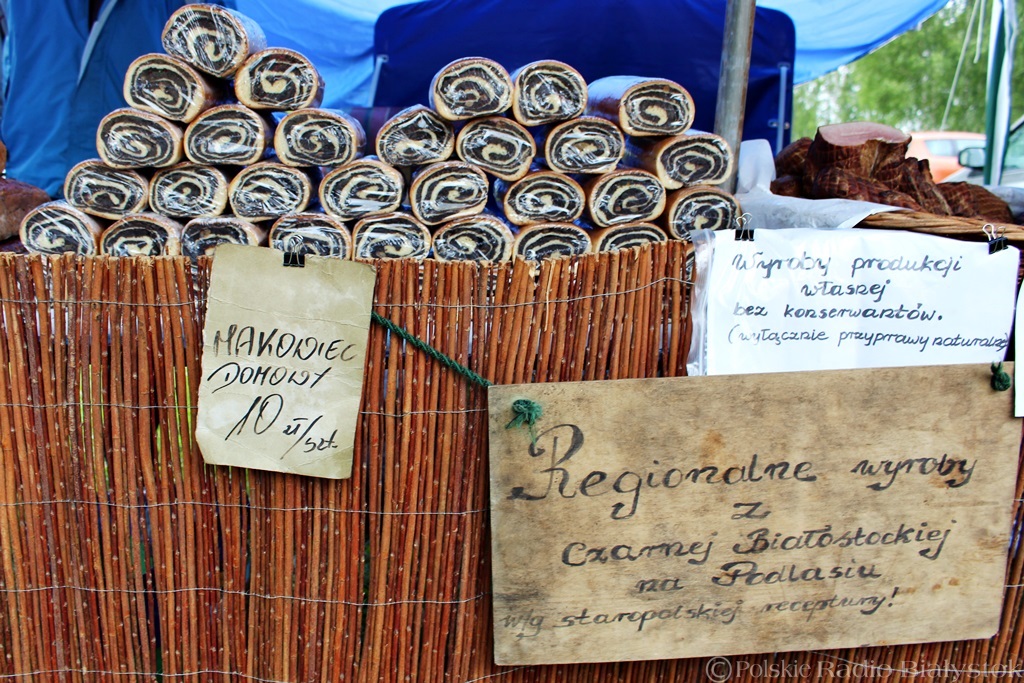 MAKOWIEC
DOMOWY
10 zł/szt.
Wyroby produkcji
własnej
bez konserwantów.
(wyłącznie przyprawy naturalne)
Regionalne wyroby
z
Czarnej Białostockiej
na Podlasiu
w/g staropolskiej receptury!
© Polskie Radio Białystok